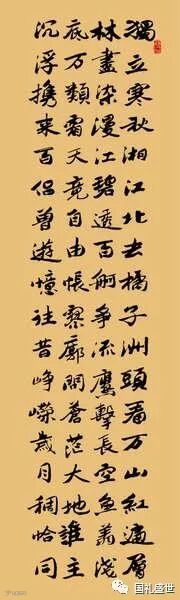 獨立寒秋湘江北去橘子洲頭看万山紅遍層
林盡染漫江碧透百舸爭流鷹擊長空魚翔淺
底万類霜天竞自由悵寥廓問蒼茫大地誰主
沉浮携来百侶曾遊憶往昔崢嶸歲月稠恰同
国礼盛世